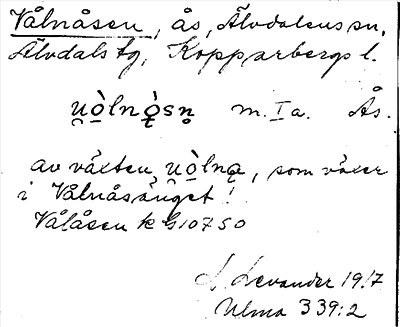 Vålnåsen, ås, Älvdalens sn,
Älvdals tg, Kopparbergs l.
u̯ò̲lnǫ̀sn̥ m. Ia. Ås.
av växten u̯ò̲lną, som växer
i Vålnåsänget!
Vålåsen k G10750
L. Levander 1917
Ulma 339:2